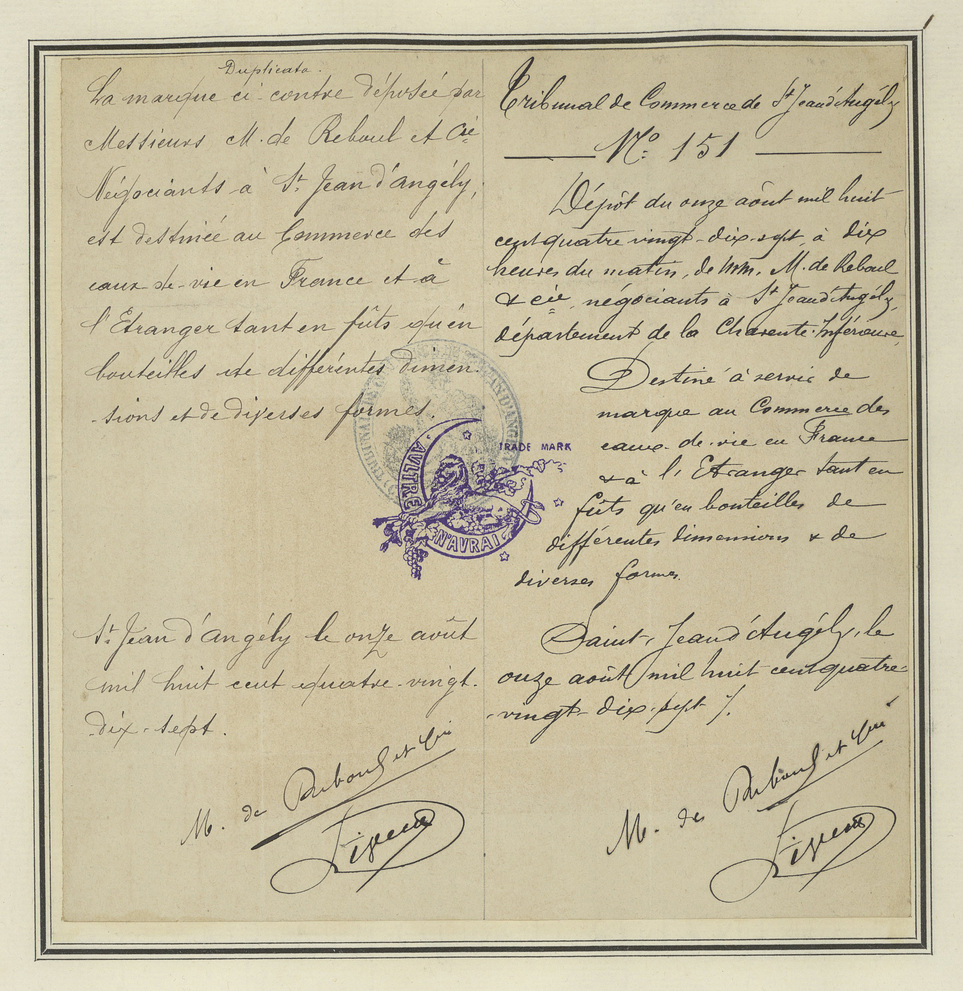 Duplicata.
La marque ci-contre déposée par
Messieurs M. de Reboul et Cie
Négociants à St Jean d'angély,
est destinée au Commerce des
eaux-de-vie en France et à
l'Etranger tant en fûts qu'en
bouteilles de différentes dimen-
-sions et de diverses formes.
St Jean d'angély le onze août
mil huit cent quatre-vingt-
dix-sept.
M. de Reboul et Cie
TRADE MARK
AVLTRE
N'AVRAI
Tribunal de Commerce de St Jean d'Angély
No: 151
Dépôt du onze août mil huit
cent quatre vingt-dix-sept, à dix
heures du matin, de MM. M. de Reboul
& Cie, négociants à St Jean d'Angély,
département de la Charente-Inférieure.
Destiné à servir de
marque au Commerce des
eaux-de-vie en France
& à l'Etranger tant en
fûts qu'en bouteilles de
différentes dimensions & de
diverses formes.
Saint-Jean d'Angély, le
onze août mil huit cent quatre-
-vingt-dix-sept /.
M. de Reboul et Cie